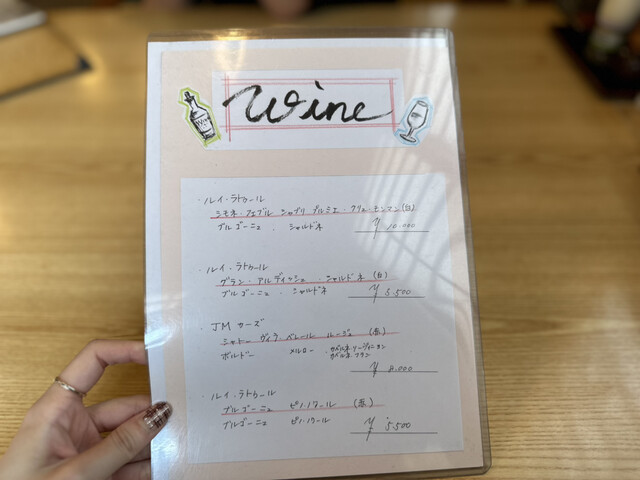 Wine
・ルイ・ラトゥール
シモネ・フェブル シャブリ プルミエ・クリュ・モンマン (白)
ブルゴーニュ . シャルドネ ¥ 10.000
・ルイ・ラトゥール
グラン・アルディッシュ・シャルドネ (白)
ブルゴーニュ . シャルドネ ¥ 5.500
・JM カーズ
シャトー ヴィラ ベレール ルージュ (赤)
ボルドー メルロー ・カベルネ・ソーヴィニヨン
カベルネ・フラン
¥ 8.000
・ルイ・ラトゥール
ブルゴーニュ ピノ・ノワール (赤)
ブルゴーニュ ピノ・ノワール ¥ 5.500